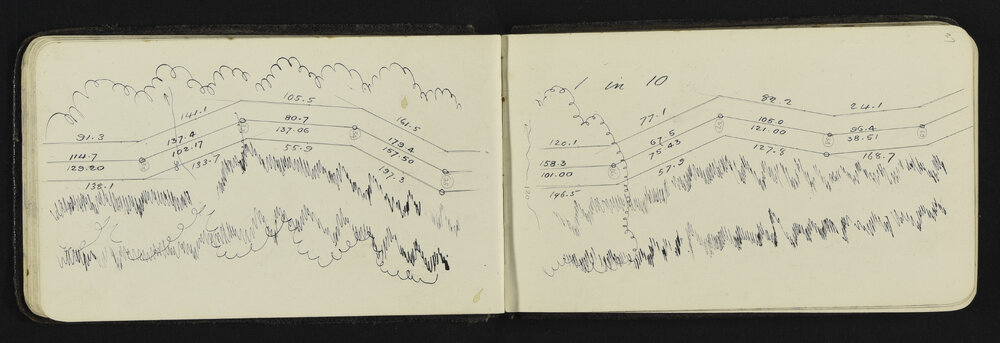 105.5
141.1
164.5
91.3
137.4
80.7
137.06
179.4
114.7
102.17
55.9
157.50
129.20
133.7
197.3
138.1
1 in 10
82.2
24.1
77.1
120.1
105.0
96.4
67.5
121.00
38.51
158.3
75.43
127.8
168.7
101.00
57.9
196.5